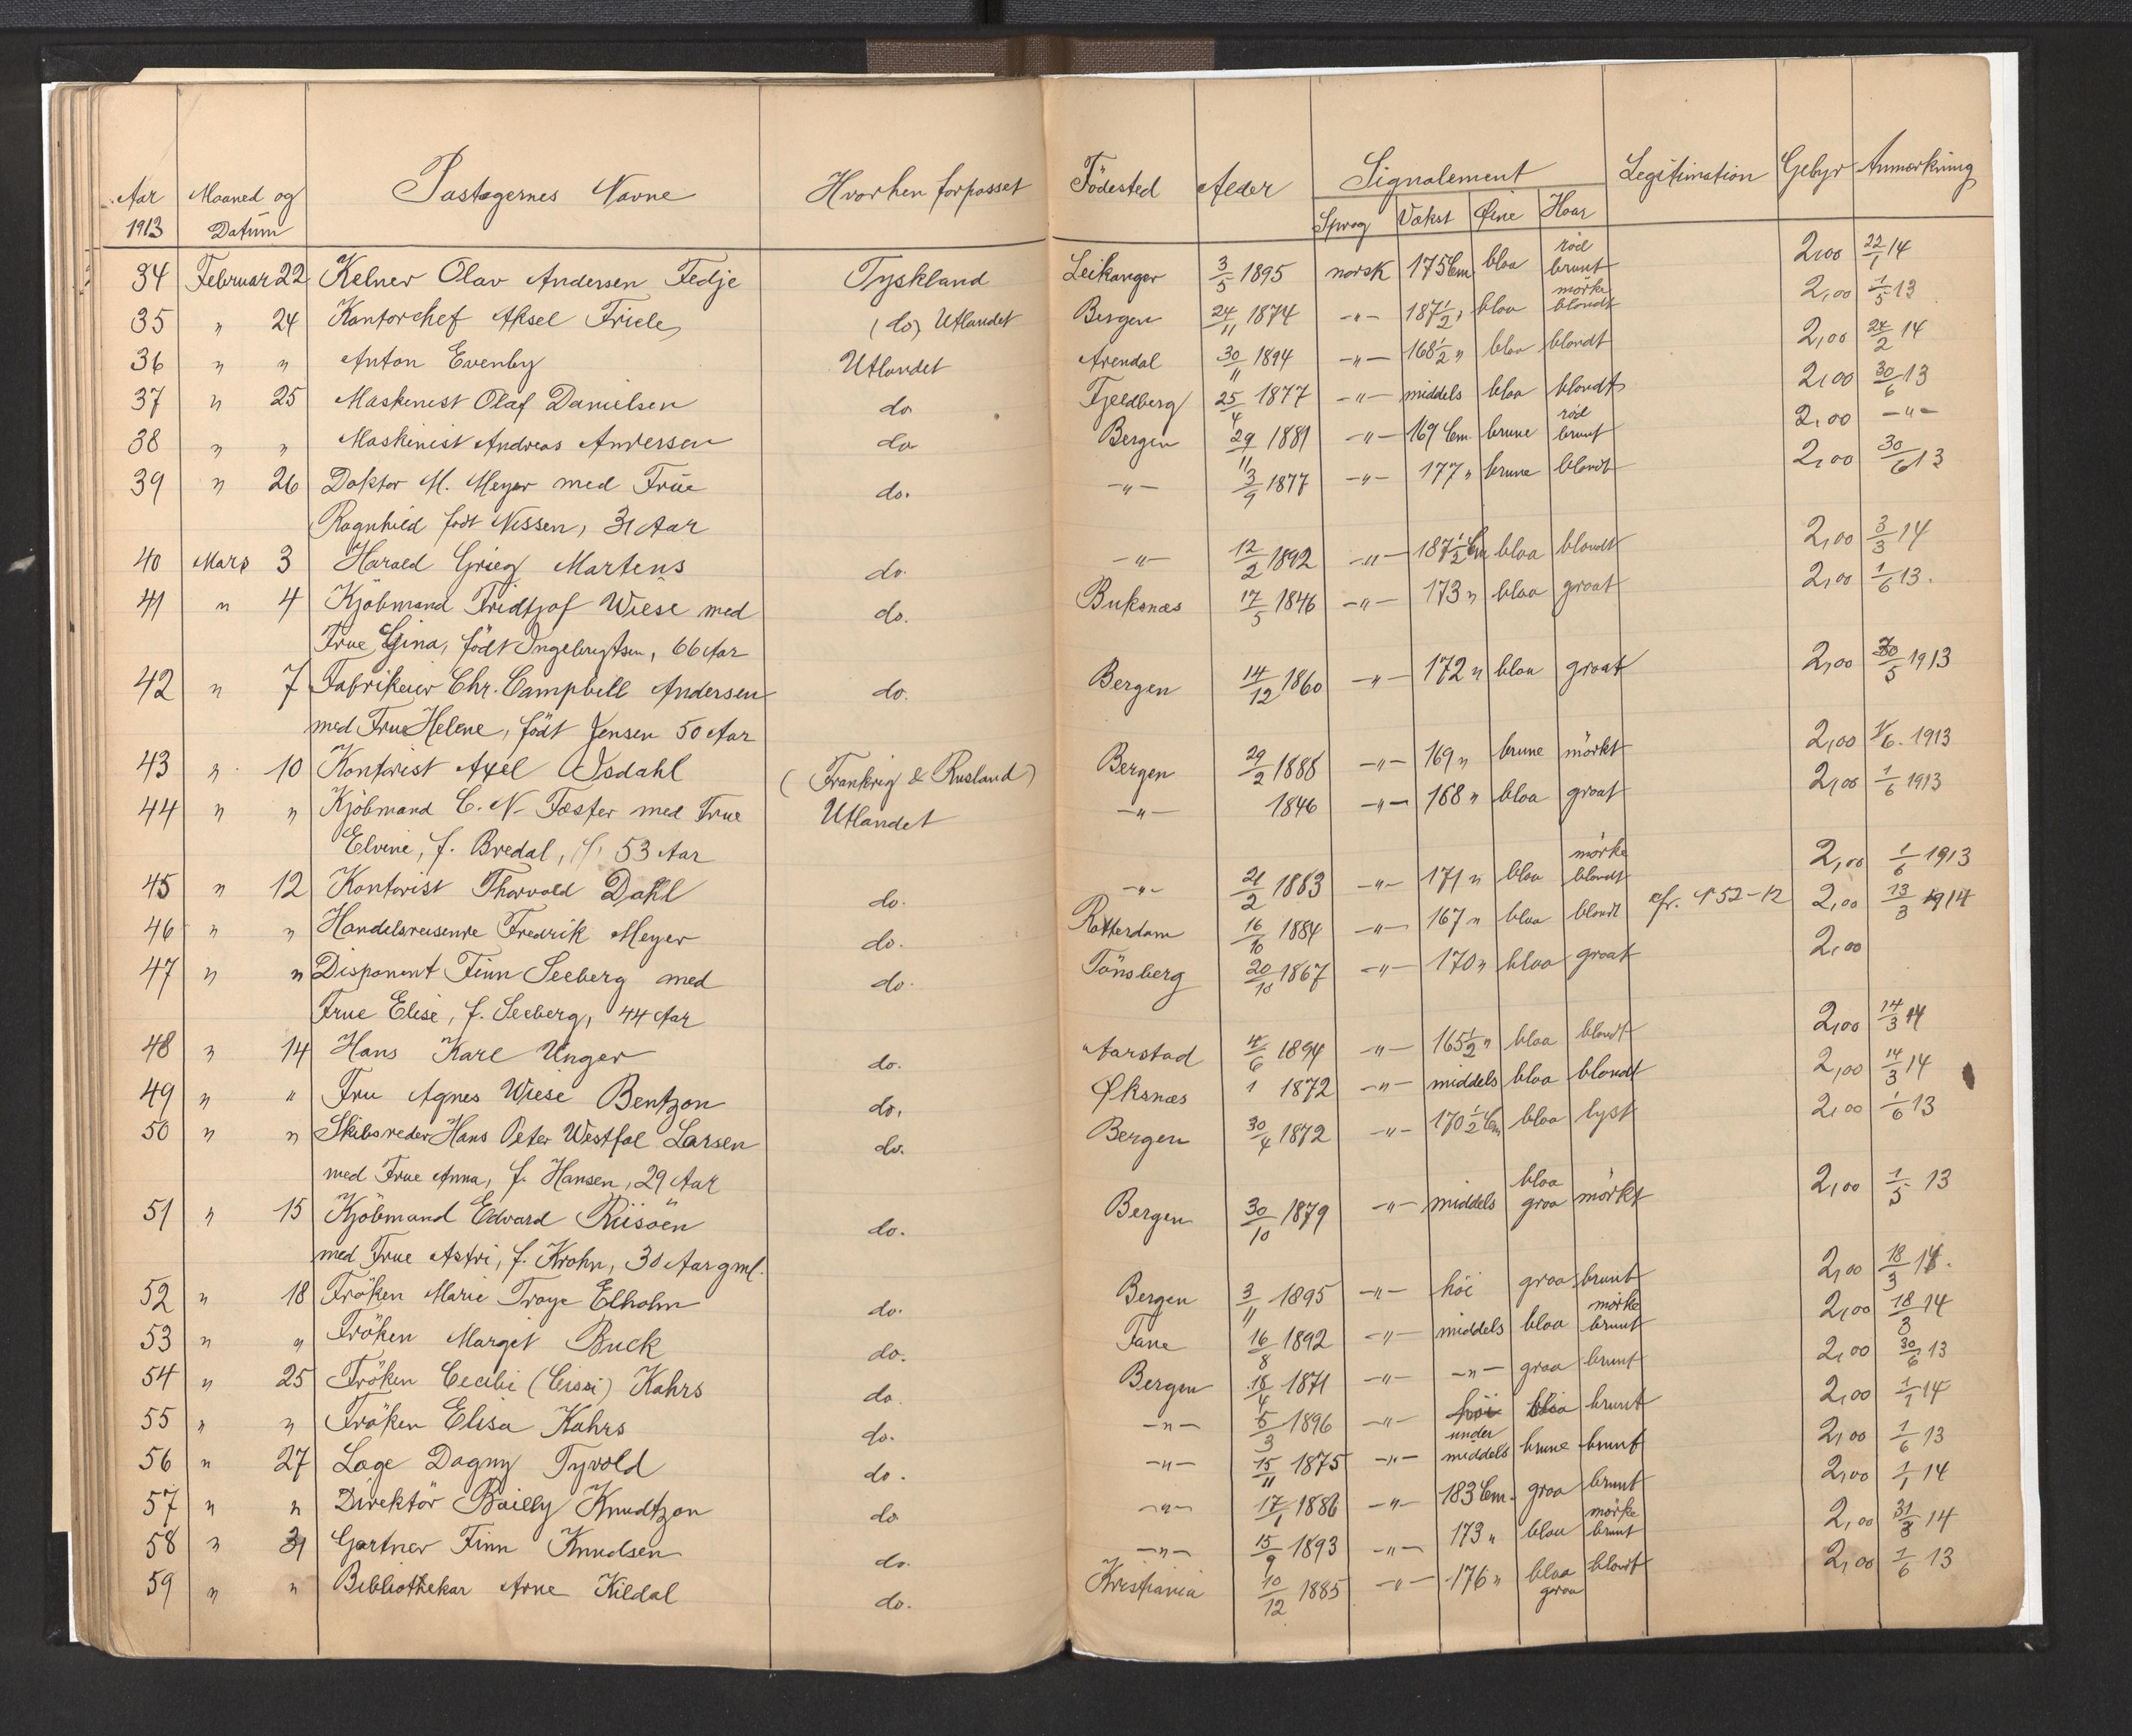 Aar Maaned og Pastagernes Navne Hvorhen forpasset Födested Alder Signalement Legitimation Gebyr Anmærkning
1913 Datum Sprog Vækst Øine Haar
34 Februar 22 Kelner Olav Andersen Fedje Tyskland Leikanger 3/5 1895 norsk 175 Cm blaa rød brunt 2,00 22/1 14
35 " 24 Kontorchef Aksel Friele (do) Utlandet Bergen 24/11 1874 -"- 187 1/2 " blaa mörke blondt 2,00 1/5 13
36 " " Anton Evenby Utlandet Arendal 30/11 1894 -"- 168 1/2 " blaa blondt 2,00 24/2 14
37 " 25 Maskinist Olaf Danielsen do Fjeldberg 25/4 1877 -"- middels blaa blondt 2,00 30/6 13
38 " " Maskinist Andreas Andersen do Bergen 29/11 1881 -"- 169 Cm. brune rød brunt 2,00 -"-
39 " 26 Doktor M. Meyer med Frue do. -"- 3/9 1877 -"- 177 " brune blondt 2,00 30/6 13
Ragnhild født Nissen, 31 Aar
40 Mars 3 Harald Grieg Martens do. -"- 12/2 1892 -"- 187 1/2 Cm blaa blondt 2,00 3/3 14
41 " 4 Kjöbmand Fridtjof Wiese med do. Buksnæs 17/5 1846 -"- 173 " blaa graat 2,00 1/6 13.
Frue Gina, födt Ingebrigtsen, 66 Aar
42 " 7 Fabrikeier Chr. Campbell Andersen do. Bergen 14/12 1860 -"- 172 " blaa graat 2,00 30/5 1913
med Frue Helene, födt Jensen 50 Aar
43 " 10 Kontorist Axel Isdahl (Frankrig & Rusland) Bergen 29/2 1888 -"- 169 " brune mörkt 2,00 1/6. 1913
44 " " Kjöbmand C. N. Foster med Frue Utlandet -"- 1846 -"- 168 " blaa graat 2,00 1/6 1913
Elvine, f. Bredal, 53 Aar
45 " 12 Kontorist Thorvald Dahl do. -"- 21/2 1883 -"- 171 " blaa mörke blondt 2,00 1/6 1913
46 " " Handelsreisende Fredrik Meyer do. Rotterdam 16/10 1884 -"- 167 " blaa blondt cfr. 152-12 2,00 13/3 1914
47 " " Disponent Finn Seeberg med do. Tönsberg 20/10 1867 -"- 170 " blaa graat 2,00
Frue Elise, f. Seeberg, 44 Aar
48 " 14 Hans Karl Unger do. Aarstad 4/6 1894 -"- 165 1/2 " blaa blondt 2,00 14/3 14
49 " " Fru Agnes Wiese Bentzon do. Øksnæs 1 1872 -"- middels blaa blondt 2,00 14/3 14
50 " " Skibsreder Hans Peter Westfal Larsen do. Bergen 30/4 1872 -"- 170 1/2 Cm blaa lyst 2,00 1/6 13
med Frue Anna, f. Hansen, 29 Aar
51 " 15 Kjöbmand Edvard Riisöen do. Bergen 30/10 1879 -"- middels blaa graa mörkt 2,00 1/5 13
med Frue Astri, f. Krohn, 30 Aar gml.
52 " 18 Fröken Marie Troye Elholm do. Bergen 3/11 1895 -"- höi graa brunt 2,00 18/3 14.
53 " " Fröken Margit Buck do. Fane 16/8 1892 -"- middels blaa mörke brunt 2,00 18/3 14
54 " 25 Fröken Cecilie (Cissi) Kahrs do. Bergen 18/4 1871 -"- -"- graa brunt 2,00 30/6 13
55 " " Fröken Elisa Kahrs do. -"- 5/3 1896 -"- höi blaa brunt 2,00 1/1 14
56 " 27 Læge Dagny Tyvold do. -"- 15/11 1875 -"- under middels brune brunt 2,00 1/6 13
57 " " Direktör Bailly Knudtzon do. -"- 17/1 1886 -"- 183 Cm. graa brunt 2,00 1/1 14
58 " 31 Gartner Finn Knudsen do. -"- 15/9 1893 -"- 173 " blaa mörke brunt 2,00 31/3 14
59 " " Bibliothekar Arne Kildal do. Kristiania 10/12 1885 -"- 176 " blaa graa blondt 2,00 1/6 13